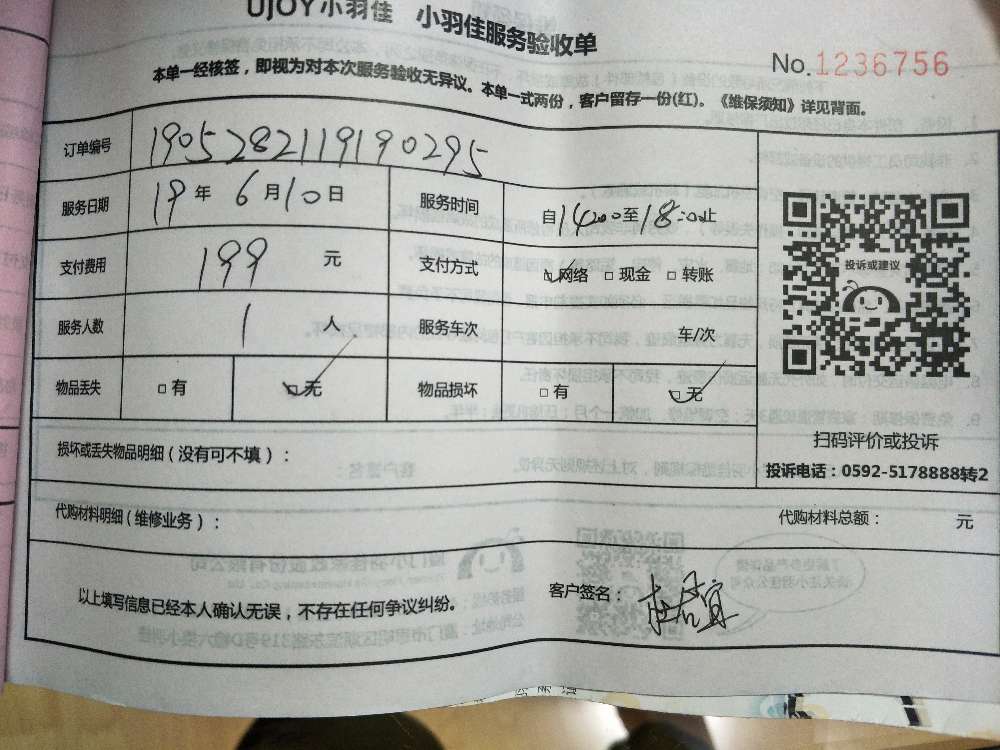 UJOY小羽佳 小羽佳服务验收单
No.1236756
本单一经核签，即视为对本次服务验收无异议。本单一式两份，客户留存一份(红)。《维保须知》详见背面。
订单编号 1905282119190295
服务日期 19年 6月10日 服务时间 自1400至18:00止
支付费用 199 元 支付方式 ☑网络 □现金 □转账
投诉或建议
服务人数 1 人 服务车次 车/次
物品丢失 □有 ☑无 物品损坏 □有 ☑无
扫码评价或投诉
损坏或丢失物品明细（没有可不填）：
投诉电话：0592-5178888转2
代购材料明细（维修业务）： 代购材料总额： 元
以上填写信息已经本人确认无误，不存在任何争议纠纷。 客户签名：